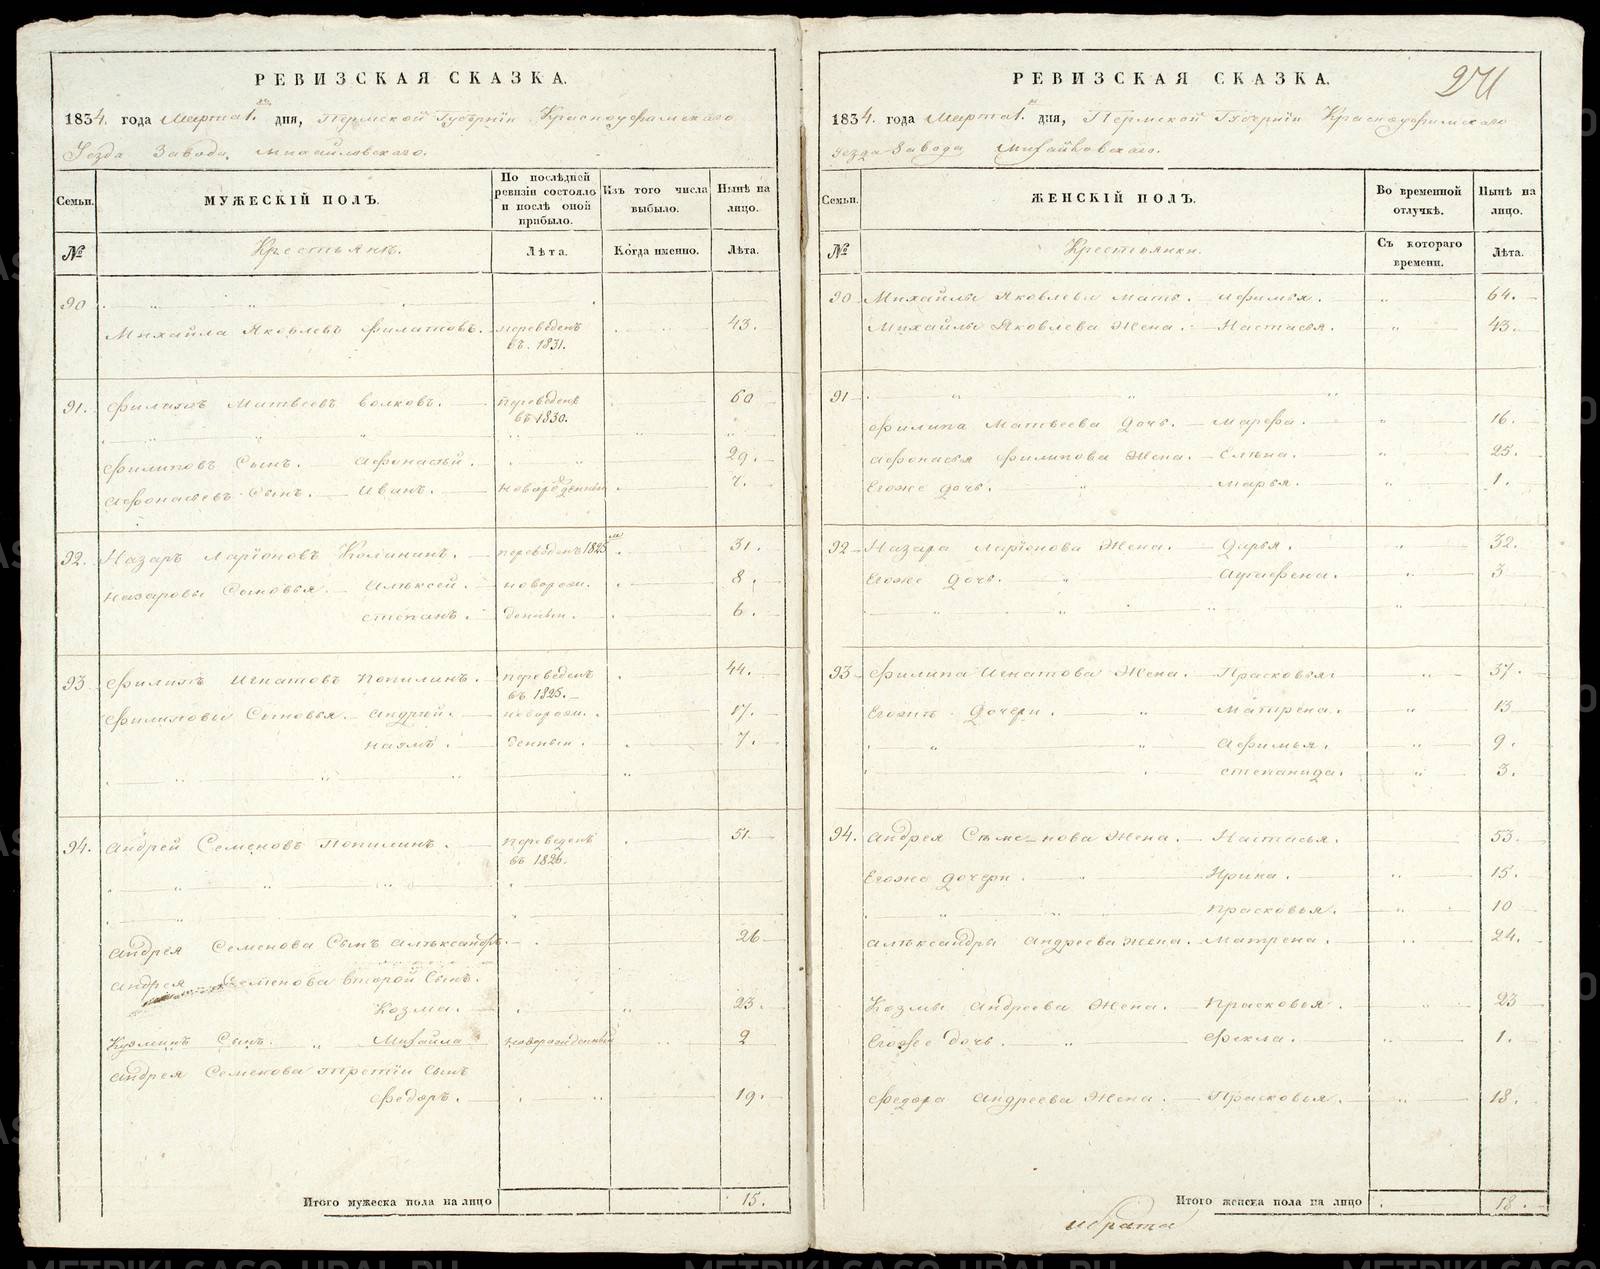 РЕВИЗСКАЯ СКАЗКА.
1834. года Марта 1. дня, Пермской Губернiи Красноуфимскаго
Уезда Завода Михайловскаго.
Семьи.
МУЖЕСКІЙ ПОЛЪ.
По послѣдней ревизіи состояло и послѣ оной прибыло.
Изъ того числа выбыло.
Нынѣ на лицо.
№
Крестьянъ.
Лѣта.
Когда именно.
Лѣта.
90
Михайла Яковлевъ Филатовъ. переведенъ въ 1831. 43.
91. Филипъ Матвеевъ Волковъ. переведенъ въ 1830. 60
Филиповъ Сынъ. Афонасей. 29.
Афонасьевъ Сынъ. Иванъ. новорожденный 7.
92. Назаръ Ларiоновъ переведенъ 1825 31.
Назаровы Сыновья. Алексей. новорож. 8.
Степанъ. денныи. 6.
93 Филипъ Игнатовъ Попилинъ. переведенъ въ 1825. 44.
Филиповы Сыновья. Андрей. новорож. 17.
Наумъ. денныи. 7.
94. Андрей Семеновъ Попилинъ. переведенъ въ 1826. 51.
Андрея Семенова Сынъ Александръ. 26
Андрея Семенова второй Сынъ.
Козма. 23.
Кузминъ Сынъ. Михайла новорожденный 2
Андрея Семенова третiй Сынъ
Федоръ. 19.
Итого мужеска пола на лицо 15.
РЕВИЗСКАЯ СКАЗКА.
1834. года Марта 1. дня, Пермской Губернiи Красноуфимскаго
уезда Завода Михайловскаго.
Семьи.
ЖЕНСКІЙ ПОЛЪ.
Во временной отлучкѣ.
Нынѣ на лицо.
№
Крестьянки.
Съ котораго времени.
Лѣта.
90 Михайлы Яковлева мать. Афимья. 64.
Михайлы Яковлева Жена. Настасья. 43.
91
Филипа Матвеева Дочь. Марфа. 16.
Афонасья Филипова Жена. Елена. 25.
Егоже дочь. Марья. 1.
92 Назара Ларiонова Жена. Дарья. 32.
Егоже дочь. Аграфена. 3
93 Филипа Игнатова Жена. Прасковья 37.
Егожъ дочери. Матрена. 13
Афимья. 9.
Степанида. 3.
94. Андрея Семенова Жена. Настасья. 53.
Егоже дочери. Ирина. 15.
Прасковья. 10
Александры Андреева Жена. Матрена. 24.
Козмы Андреева Жена. Прасковья. 23
Егоже дочь. Фекла. 1.
Федора Андреева Жена. Прасковья. 18.
Итого женска пола на лицо 18.